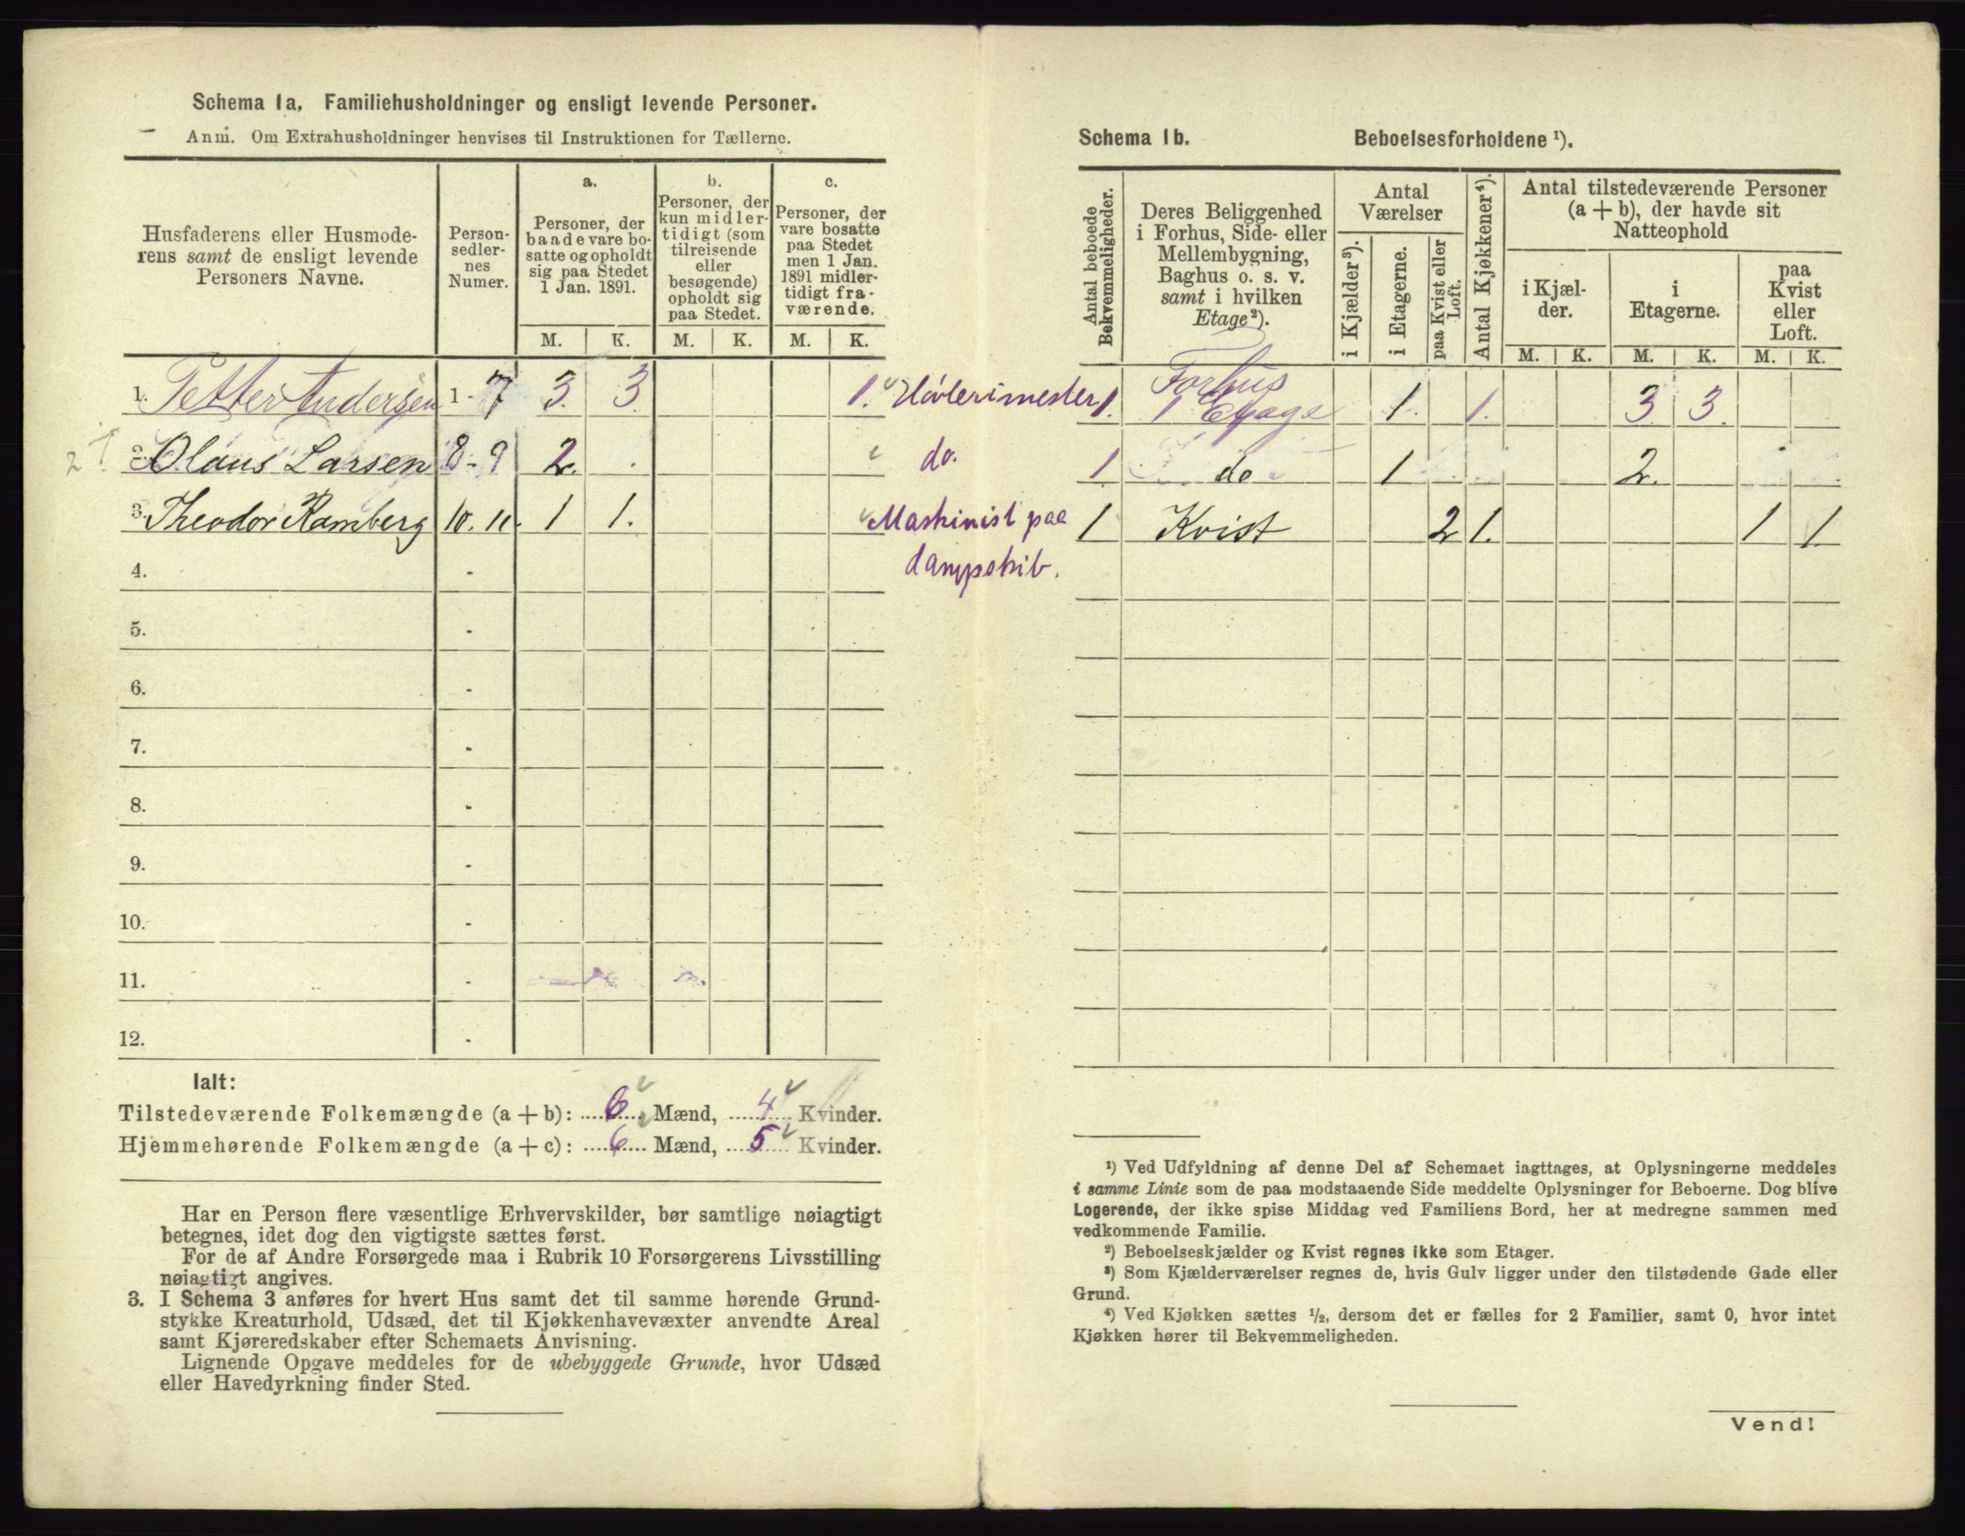 Schema 1a. Familiehusholdninger og ensligt levende Personer.
Anm. Om Extrahusholdninger henvises til Instruktionen for Tællerne.
Husfaderens eller Husmode-
rens samt de ensligt levende
Personers Navne.
Person-
sedler-
nes
Numer.
a.
Personer, der
baade vare bo-
satte og opholdt
sig paa Stedet
1 Jan. 1891.
b.
Personer, der
kun midler-
tidigt (som
tilreisende
eller
besøgende)
opholdt sig
paa Stedet.
c.
Personer, der
vare bosatte
paa Stedet
men 1 Jan.
1891 midler-
tidigt fra-
værende.
M. K. M. K. M. K.
1. Petter Andersen 1 - 7 3. 3 1. Høvlerimester
2. Olaus Larsen 8 - 9 2. do.
3. Theodor Ramberg 10. 11. 1 1. Maskinist paa
dampskib.
4. -
5. -
6. -
7. -
8. -
9. -
10. -
11. -
12. -
Ialt:
Tilstedeværende Folkemængde (a + b): 6 Mænd, 4 Kvinder.
Hjemmehørende Folkemængde (a + c): 6 Mænd, 5 Kvinder.
Har en Person flere væsentlige Erhvervskilder, bør samtlige nøiagtigt
betegnes, idet dog den vigtigste sættes først.
For de af Andre Forsørgede maa i Rubrik 10 Forsørgerens Livsstilling
nøiagtigt angives.
3. I Schema 3 anføres for hvert Hus samt det til samme hørende Grund-
stykke Kreaturhold, Udsæd, det til Kjøkkenhavevæxter anvendte Areal
samt Kjøreredskaber efter Schemaets Anvisning.
Lignende Opgave meddeles for de ubebyggede Grunde, hvor Udsæd
eller Havedyrkning finder Sted.
Schema 1b. Beboelsesforholdene ¹).
Antal beboede
Bekvemmeligheder.
Deres Beliggenhed
i Forhus, Side- eller
Mellembygning,
Baghus o. s. v.
samt i hvilken
Etage²).
Antal
Værelser
i Kjælder³).
i Etagerne.
paa Kvist eller
Loft.
Antal Kjøkkener⁴).
Antal tilstedeværende Personer
(a + b), der havde sit
Natteophold
i Kjæl-
der.
i
Etagerne.
paa
Kvist
eller
Loft.
M. K. M. K. M. K.
1. Forhus
1 Etage 1. 1. 3 3.
1. do 1 2.
1 Kvist 2 1. 1 1.
¹) Ved Udfyldning af denne Del af Schemaet iagttages, at Oplysningerne meddeles
i samme Linie som de paa modstaaende Side meddelte Oplysninger for Beboerne. Dog blive
Logerende, der ikke spise Middag ved Familiens Bord, her at medregne sammen med
vedkommende Familie.
²) Beboelseskjælder og Kvist regnes ikke som Etager.
³) Som Kjælderværelser regnes de, hvis Gulv ligger under den tilstødende Gade eller
Grund.
⁴) Ved Kjøkken sættes ½, dersom det er fælles for 2 Familier, samt 0, hvor intet
Kjøkken hører til Bekvemmeligheden.
Vend!